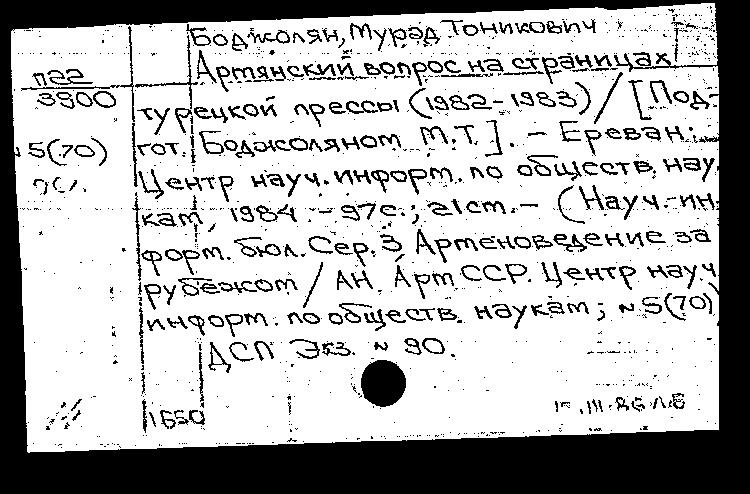 Боджолян, Мурад Тоникович
п22
3900
Армянский вопрос на страницах
турецкой прессы (1982-1983) / [Под-
№5(70)
гот. Боджоляном М.Т.]. - Ереван:
Центр науч. информ. по обществ. нау-
кам, 1984. - 97с.; 21см. - (Науч.-ин-
форм. бюл. Сер. 3 Арменоведение за
рубежом / АН. Арм ССР. Центр науч.
информ. по обществ. наукам; №5(70)
ДСП Экз. № 90.
1650
.III.86 Л.Б